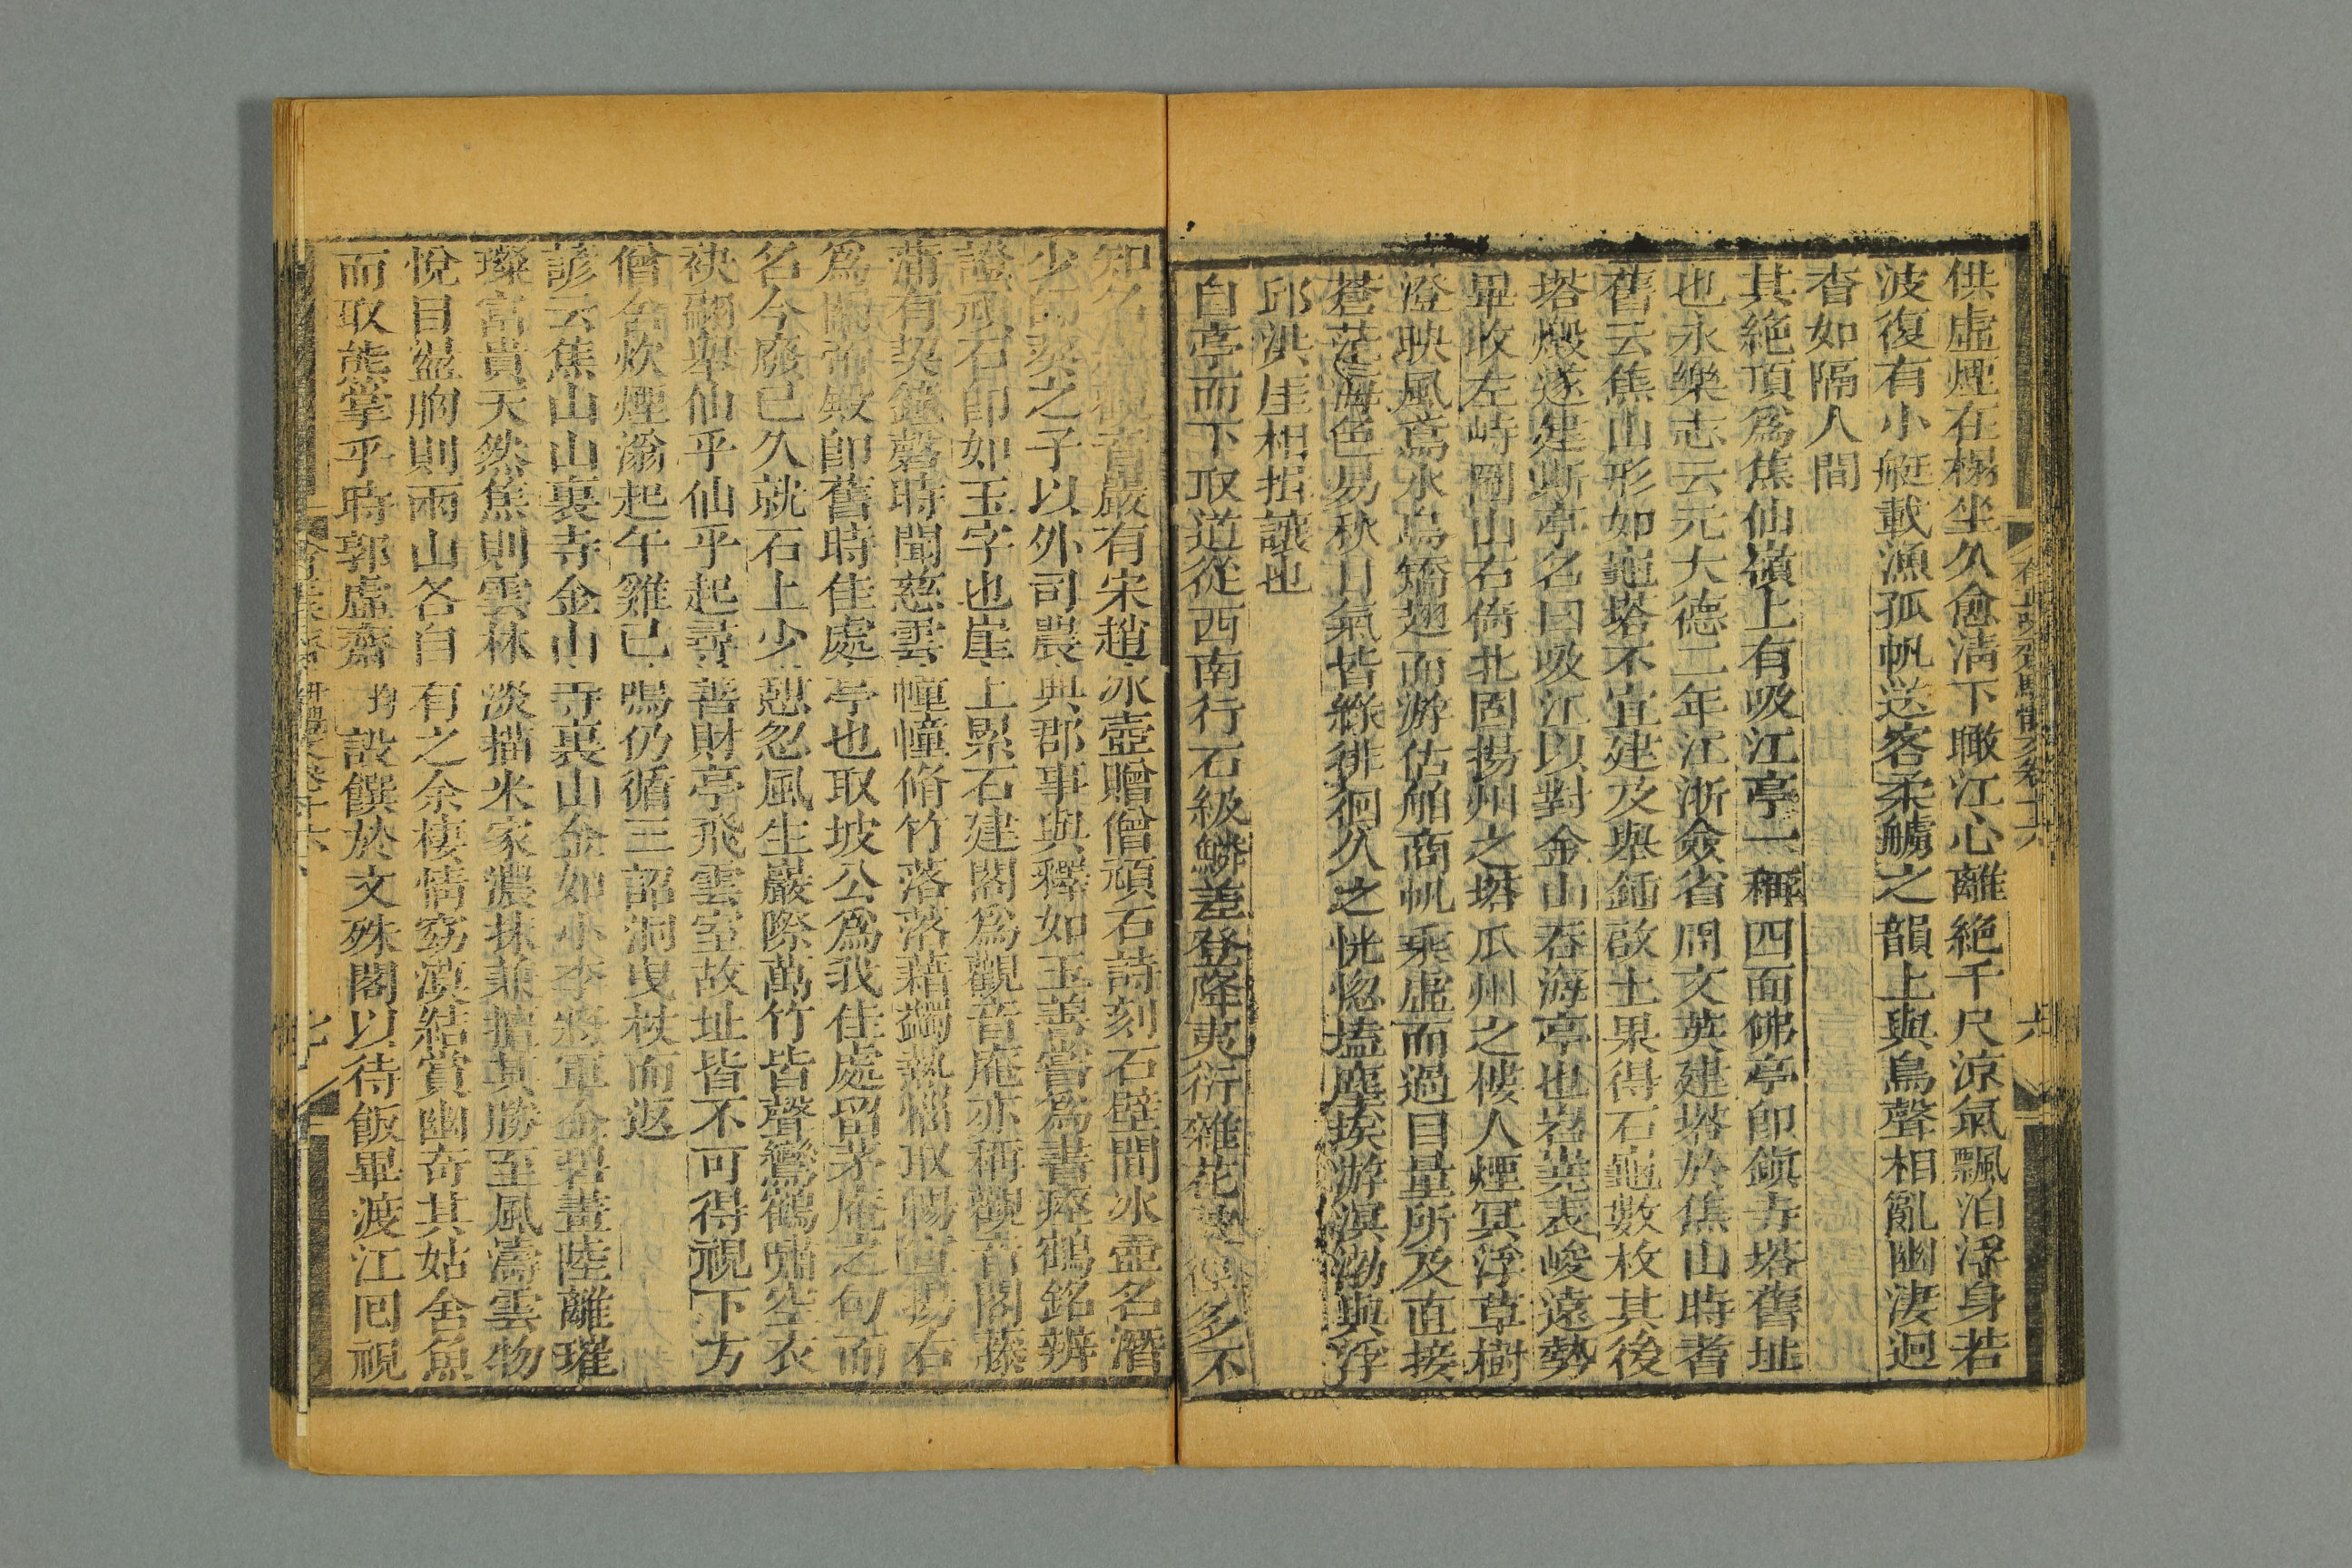 供虛煙在榻坐久愈淸下瞰江心離絶千尺涼氣飄泊浮身若
波復有小艇載漁孤帆送客柔艣之韻上與鳥聲相亂幽淒迥
杳如隔人間
其絶頂爲焦仙嶺上有吸江亭一稱四面佛亭卽鎭寺塔舊址
也永樂志云元大德二年江浙僉省周文英建塔於焦山時耆
舊云焦山形如龜塔不宜建及舉鍤啟土果得石龜數枚其後
塔燬遂建斯亭名曰吸江以對金山吞海亭也岧嶤表峻遠勢
畢收左峙圌山右倚北固揚州之塔瓜州之樓人煙冥浮草樹
澄映風鳶水鳥矯翅而游估舶商帆乘虛而過目量所及直接
蒼茫海色易秋日氣皆綠徘徊久之恍惚壒塵埃游溟渤與浮
邱洪厓相揖讓也
自亭而下取道從西南行石級鱗差登降夷衍雜花 多不
知名 觀音巖有宋趙冰壺贈僧頑石詩刻石壁間冰壺名溍
少師葵之子以外司農典郡事與釋如玉善嘗爲書瘞鶴銘辨
證頑石卽如玉字也崖上累石建閣爲觀音庵亦稱觀音閣蔬
蒲有契鐘磬時聞慈雲幢幢脩竹落落藉蠲熱惱取暢 石
爲關帝殿卽舊時佳處亭也取坡公爲我佳處留茅庵之句而
名今廢已久就石上少憩忽風生巖際萬竹皆聲鸞鶴嘯空衣
袂翩舉仙乎仙乎起尋善財亭飛雲室故址皆不可得視下方
僧舍炊煙滃起午雞已鳴仍循三詔洞曳杖而返
諺云焦山山裏寺金山寺裏山金如小李將軍金碧畫陸離璀
璨富貴天然焦則雲林淡描米家濃抹兼擅其勝至風濤雲物
悅目盪胸則兩山各自有之余棲情窈漠結賞幽奇其姑舍魚
而取熊掌乎時郭虛齋均設饌於文殊閣以待飯畢渡江回視